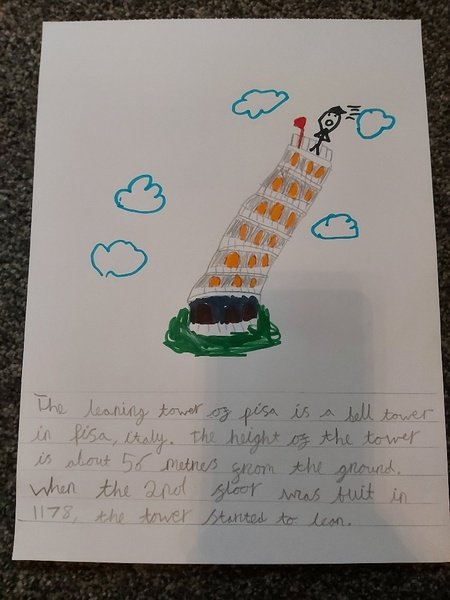 The leaning tower of pisa is a bell tower
in pisa, italy. The height of the tower
is about 56 metres from the ground.
When the 2nd floor was buit in
1178, the tower started to lean.